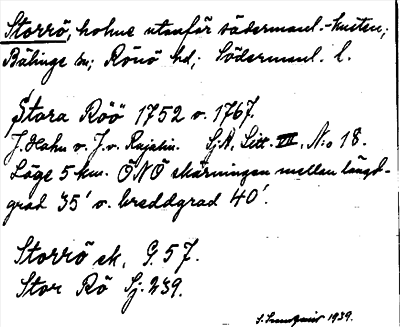 Storrö, holme utanför södermanl.-kusten;
Bälinge sn; Rönö hd; Södermanl. l.
Stora Röö 1752 o. 1767.
J. Hahn o. J. v. Rajalin. Sj.A. Litt. VII, N:o 18.
Läge 5 km. ONÖ skärningen mellan längd-
grad 35' o. breddgrad 40'.
Storrö ek. G. 57.
Stor Rö Sj. 239.
1939.